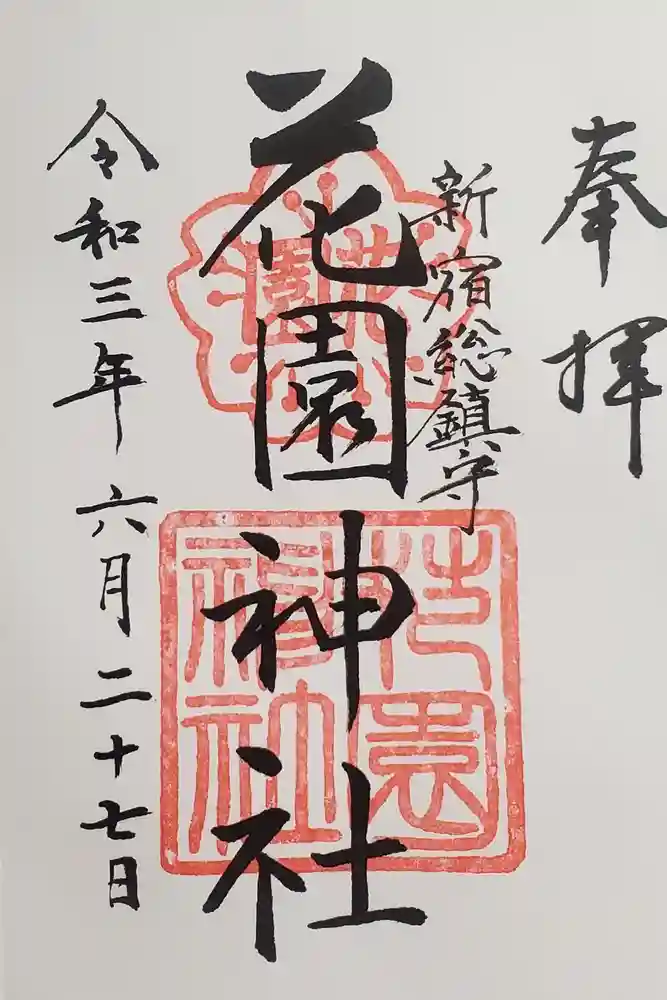 奉拝
新宿総鎮守
花園神社
令和三年六月二十七日
花園
花園
神社